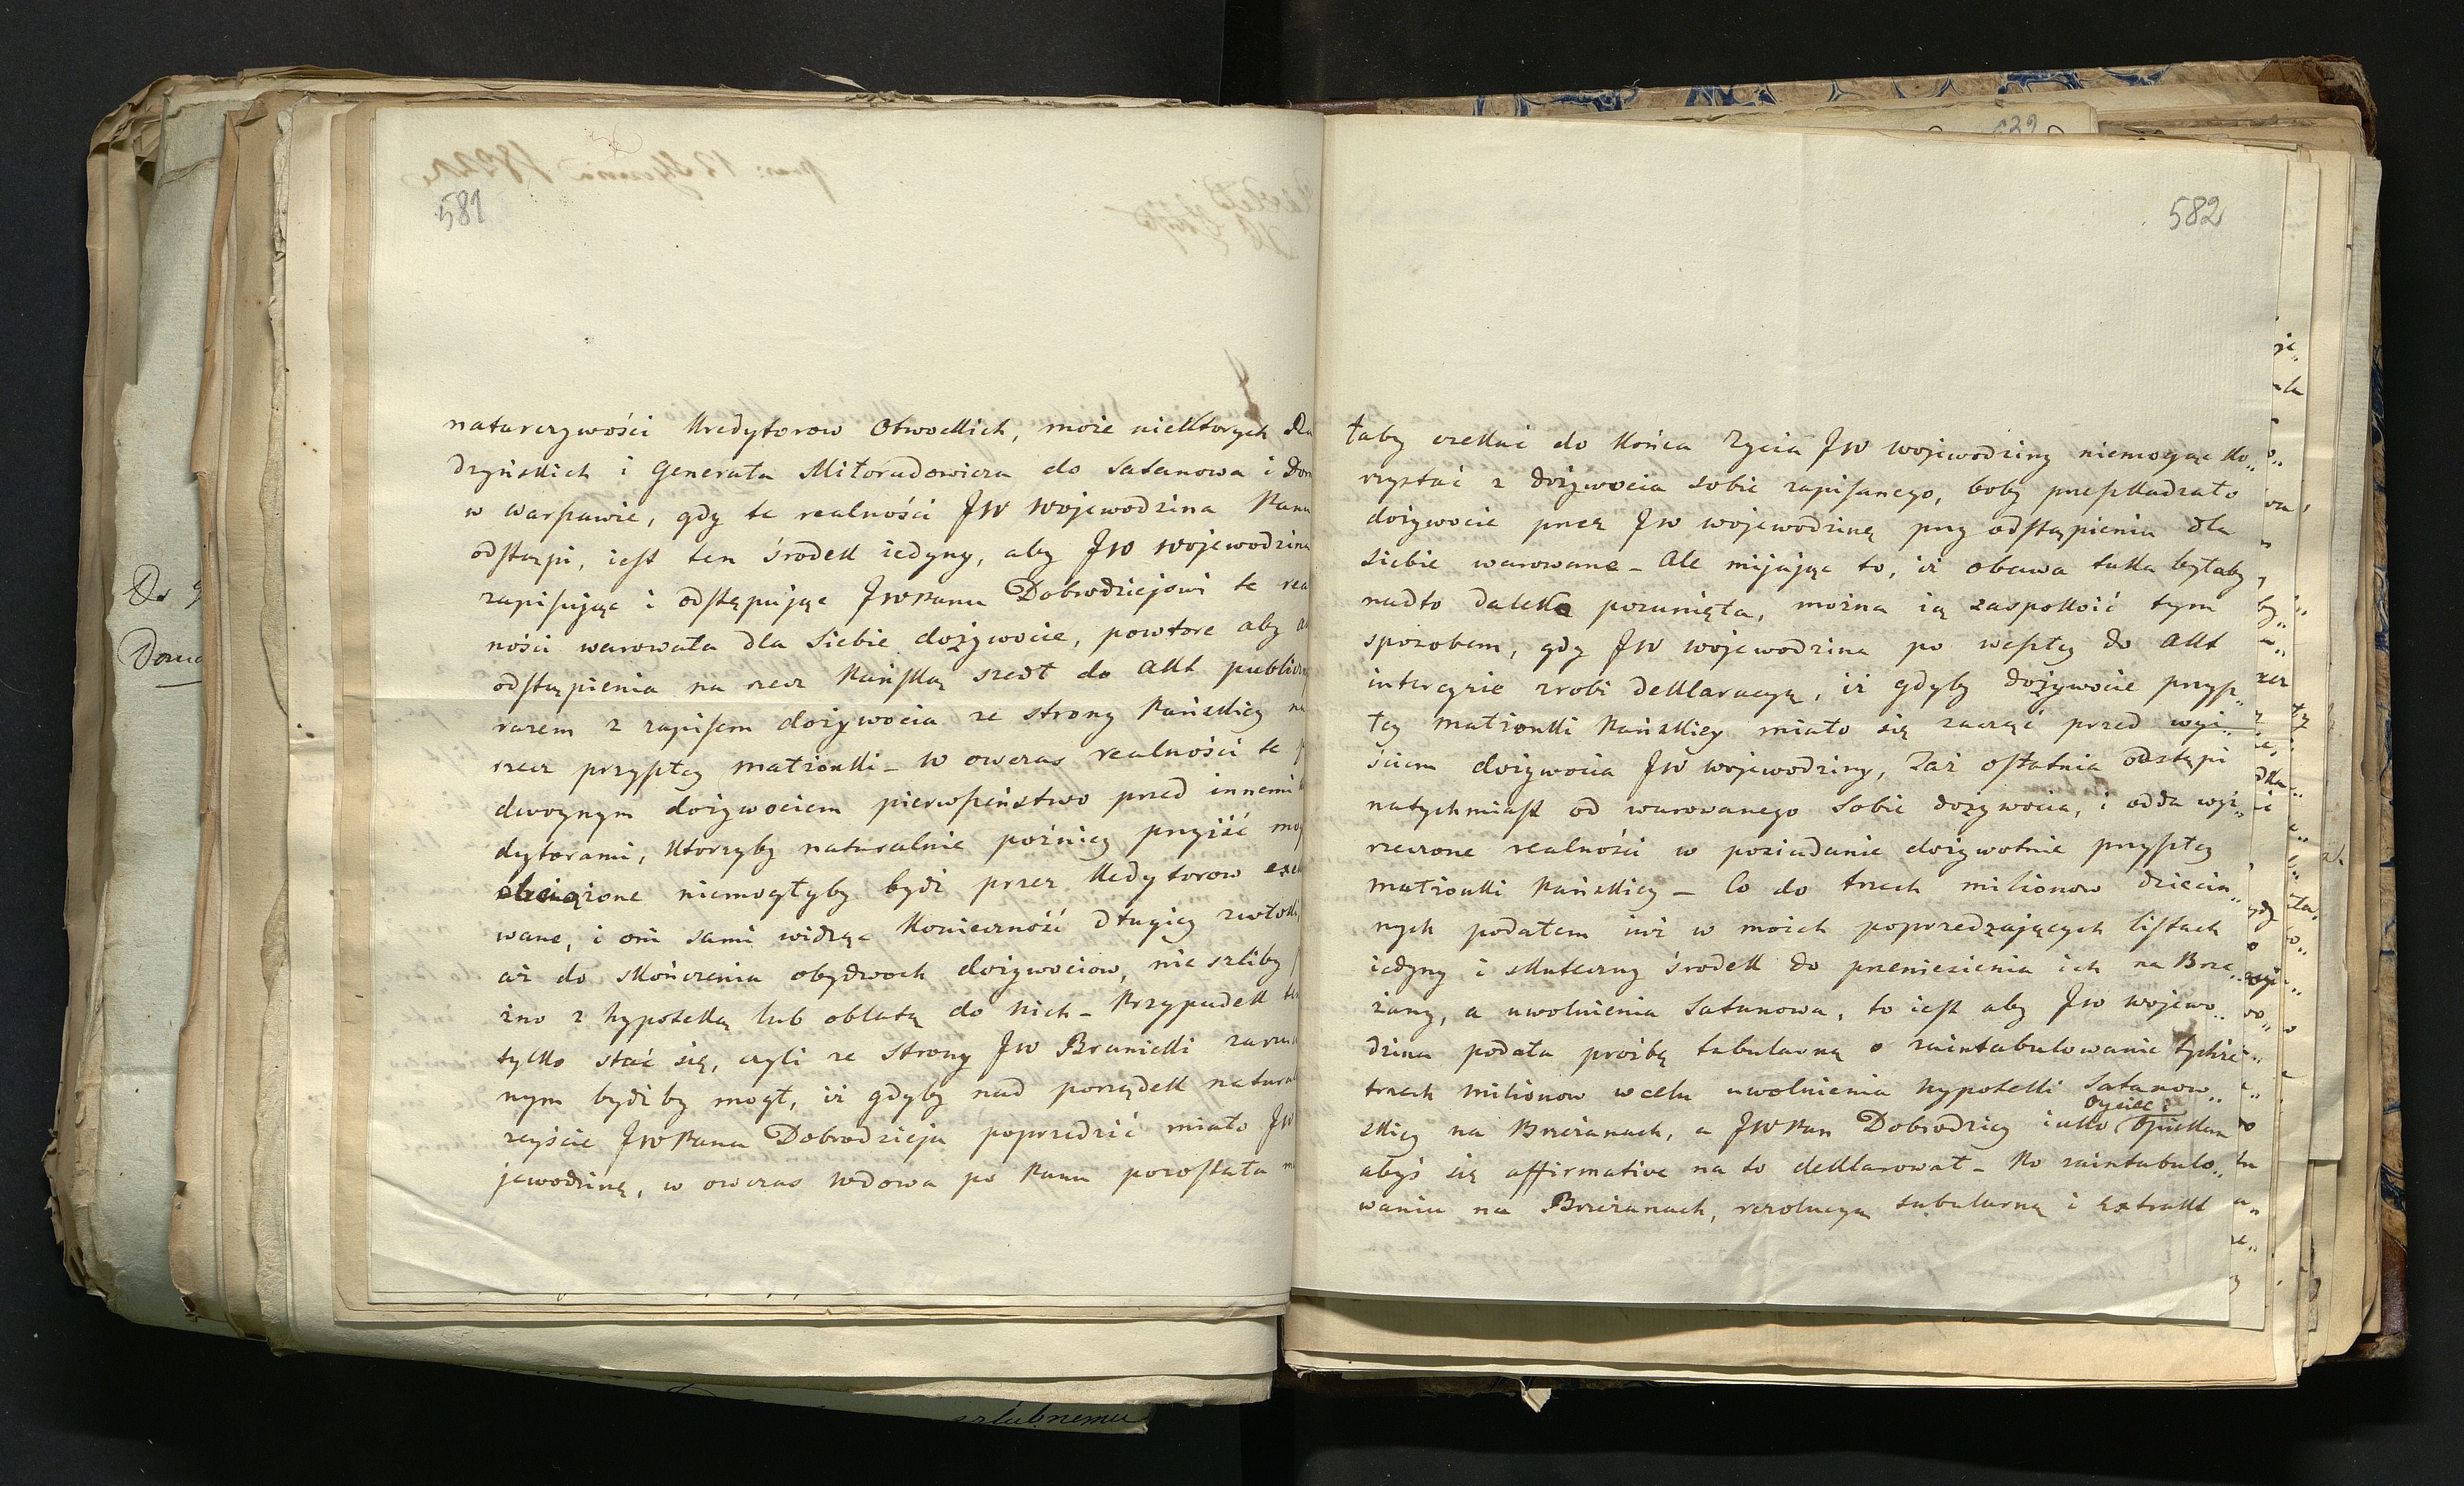 581
naturczywości Kredytorow Otwockich, może niektorych Ra
dzyńskich i Generała Miłoradowicza do Satanowa i Dom
w Warszawie, gdy te realności JW Wojewodzina Panu
odstąpi, iest ten środek iedyny, aby JW Wojewodzina
zapisując i odstępując JWPanu Dobrodziejowi te rea
ności warowała dla siebie dożywocie, powtore aby a
odstąpienia na rzecz Pańską szedł do Akt publiczn
razem z zapisem dożywocia ze strony Pańskiey na
rzecz przyszłey małżonki – W owczas realności te p
dwoynym dożywociem pierwszeństwo przed innemi
dytorami, ktorzyby naturalnie pożniey przyiść mog
obciążone niemogłyby bydź przez Kredytorow exe
wane, i oni sami widząc konieczność długiey zwłoki,
aż do skończenia obydwoch dożywociow, nie szliby
żno z hypoteką lub oblatą do nich – Przypadek ten
tylko stać się, czyli ze strony JW Branicki zarzu
nym bydźby mogł, iż gdyby nad porządek natura
zeyście JWPana Dobrodzieja poprzedzić miało JW
jewodzinę, w owczas wdowa po Panu pozostała m
582
łaby czekać do końca życia JW Wojewodziny niemogąc ko„
rzystać z dożywocia sobie zapisanego, boby przeszkadzało
dożywocie przez JW Wojewodzinę przy odstąpieniu dla
siebie warowane – Ale mijając to, iż obawa taka byłaby
nadto daleko posunięta, można ią zaspokoić tym
sposobem, gdy JW Wojewodzina po weszłey do Akt
intercyzie zrobi deklaracyą, iż gdyby dożywocie przysz„
łey małżonki Pańskiey miało się zacząć przed wyi„
ściem dożywocia JW Wojewodziny, Taż ostatnia odstąpi
natychmiast od warowanego sobie dożywocia, i odda wyż„
rzeczone realności w posiadanie dożywotnie przyszłey
małżonki Pańskiey – Co do trzech milionow dziecin„
nych podałem iuż w moich poprzedzających listach
iedyny i skuteczny środek do przeniesienia ich na Brze„
żany, a uwolnienia Satanowa, to iest aby JW Wojewo„
dzina podała proźbę tabularną o zaintabulowanie tychże
trzech milionow w celu uwolnienia hypoteki Satanow„
skiey na Brzeżanach, a JWPan Dobrodziey iako Oyciec i Opiekun
abyś się affirmative na to deklarował – Po zaintabulo„
waniu na Brzeżanach, rezolucya tabularna i extrakt